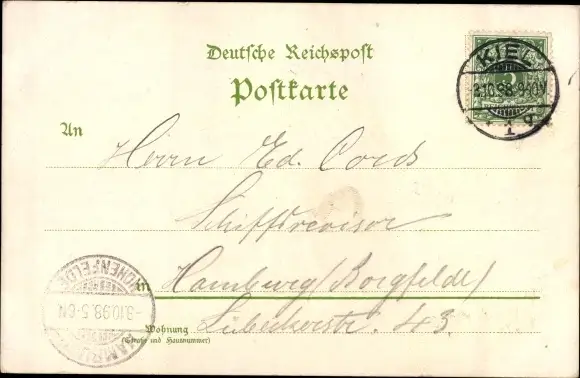 Deutsche Reichspost
Postkarte
KIEL
3.10.98. 9-10V.
1 d
An
Herrn Ed. Cords
Schiffsrevisor
in Hamburg (Borgfelde)
Wohnung Lübeckerstr. 43.
(Straße und Hausnummer)
HOHENFELDE
-3.10.98. 5-6N
HAMBURG